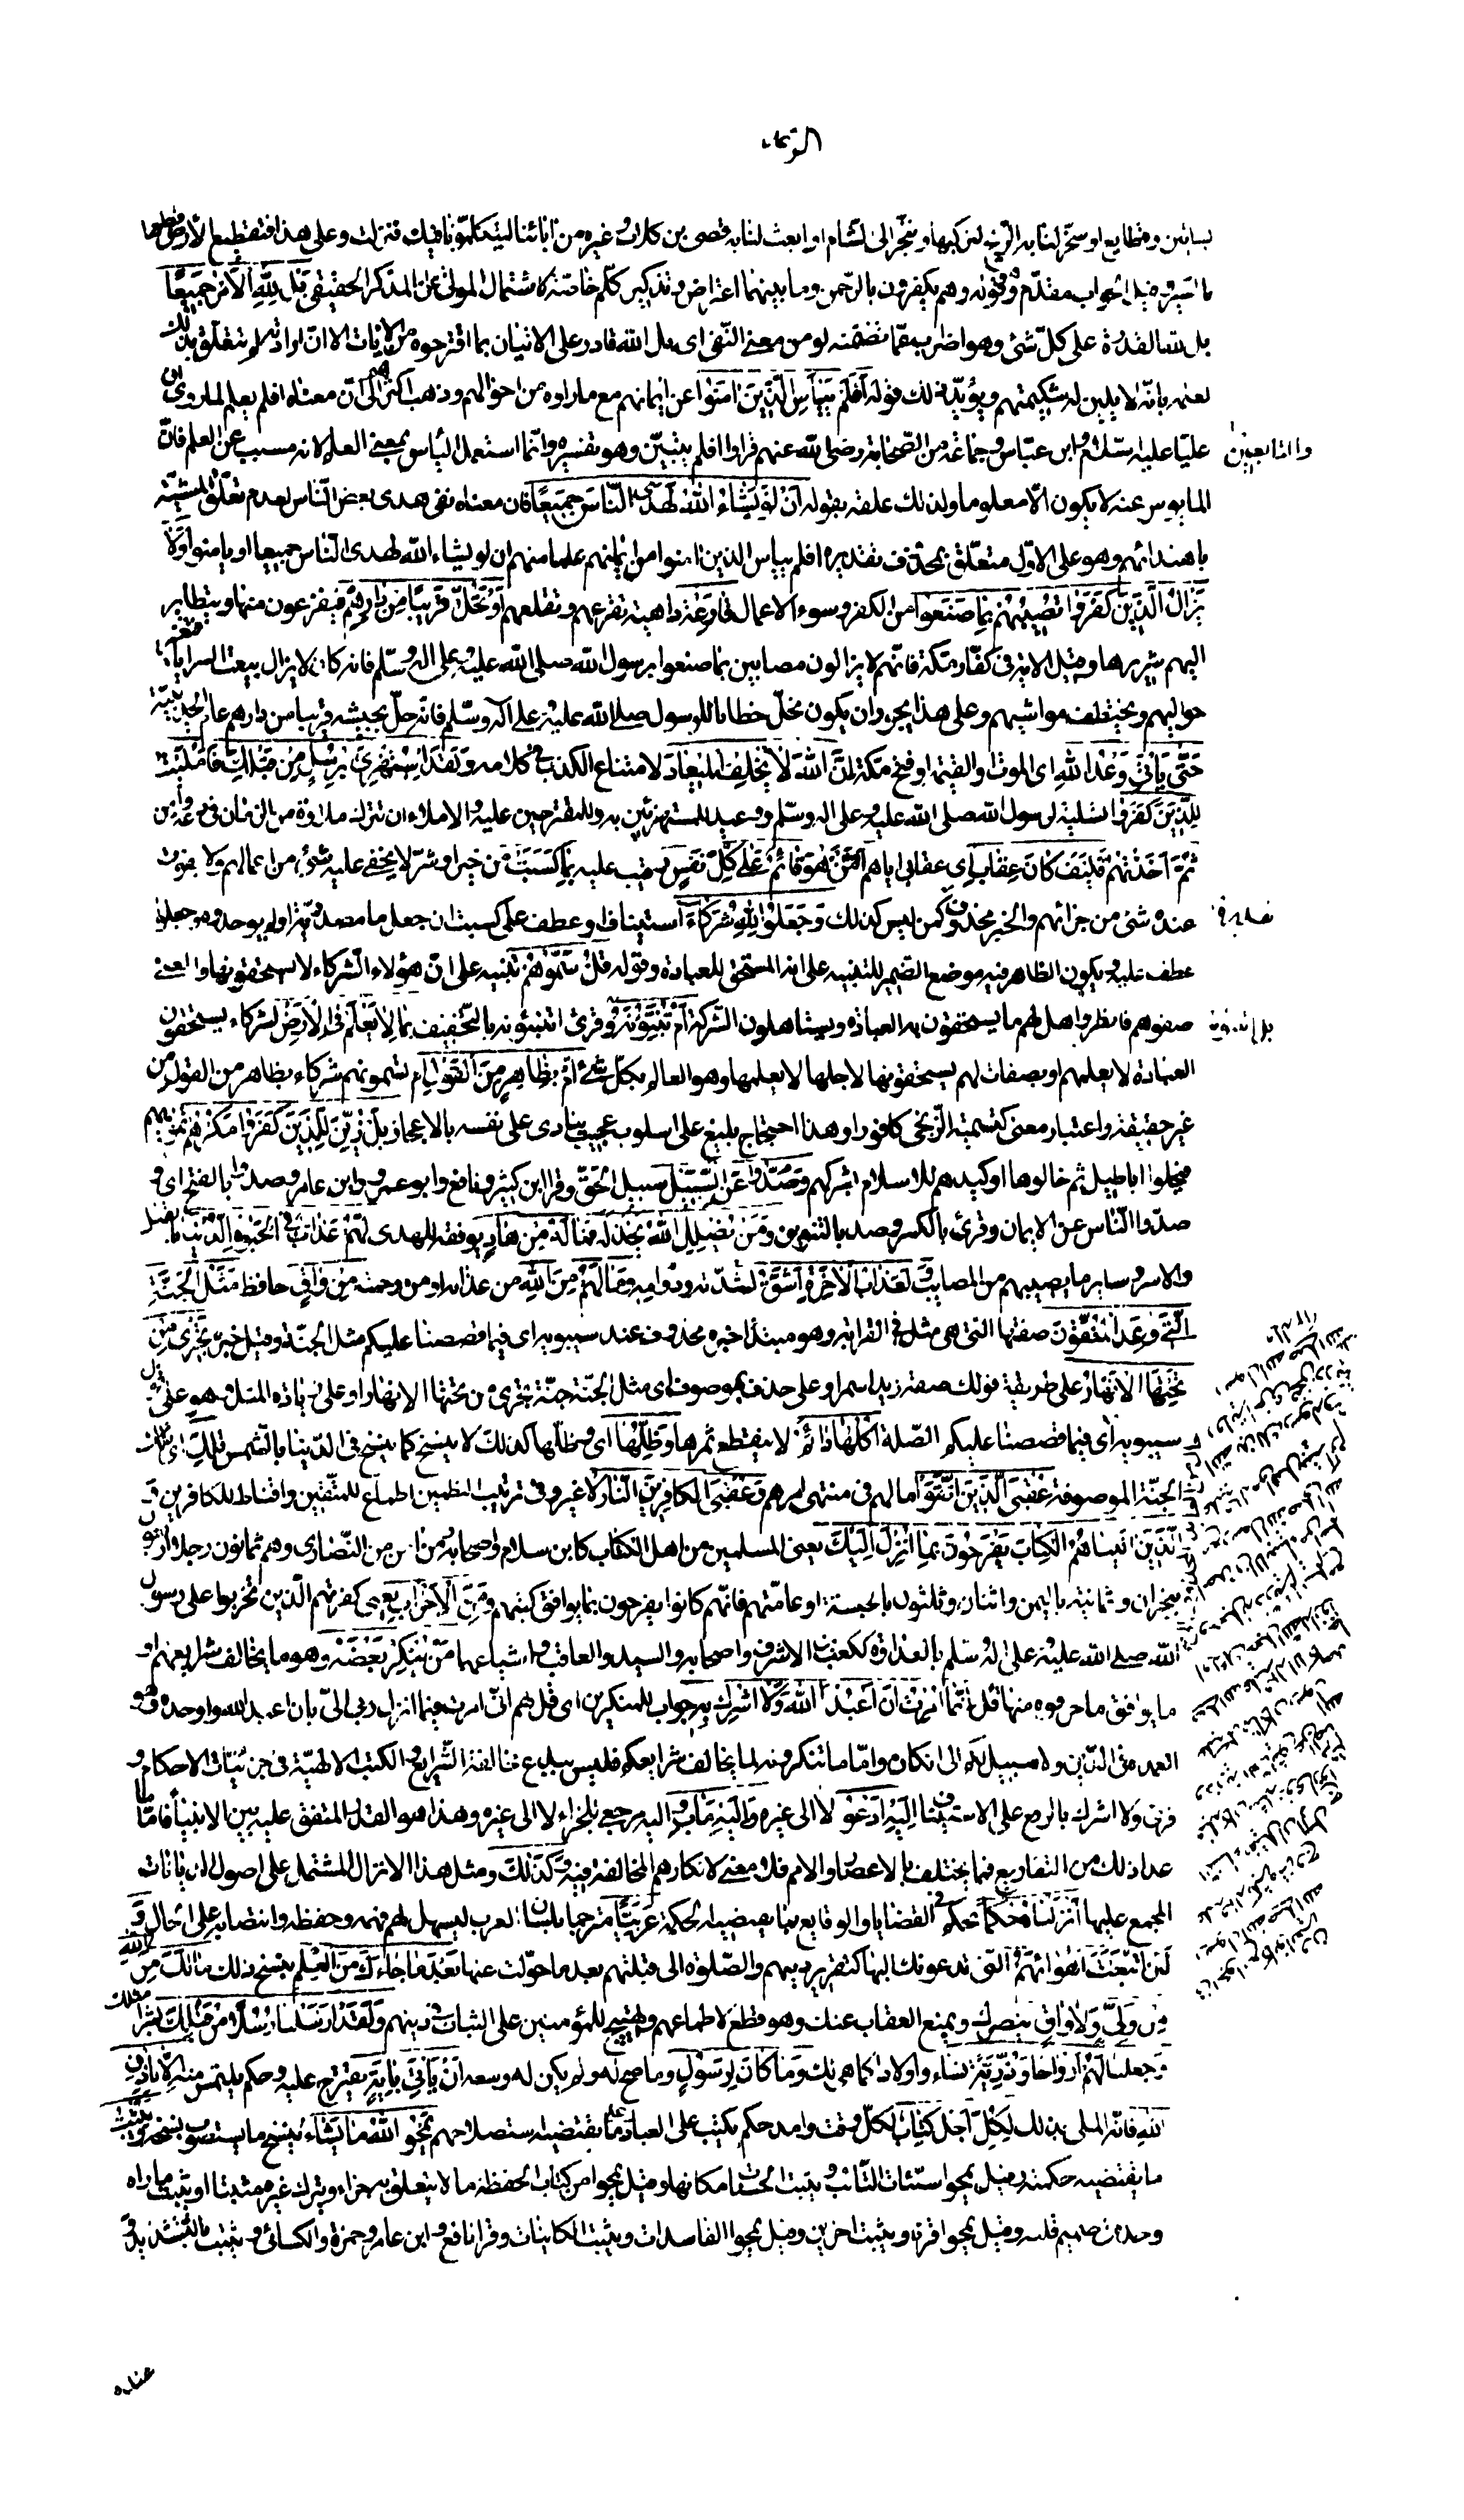 بساتين وقطايع او سخر لنا به الريح لنركبها ونتجر الى الشام او ابعث لنا به قصى بن كلاب وغيره من آبائنا ليتكلمونا فيك فنزلت وعلى هذا فتقطيع الارض قطعها
بالسير وقيل الجواب مقدم وهو قوله وهم يكفرون بالرحمن وما بينهما اعتراض وتذكير كلم خاصة لاشتمال الموتى على المذكر الحقيقى بَل لِلّهِ الأَمْرُ جَمِيعًا
بل لله القدرة على كل شئ وهو اضراب عما تضمنه لو من معنى النفى اى بل الله قادر على الاتيان بما اقترحوه من الآيات الا ان ارادته لم تتعلق بذلك
لعلمه بانه لا يلين له شكيمتهم ويؤيد ذلك قوله أَفَلَمْ يَيْأَسِ الَّذِينَ آمَنُوا عن ايمانهم مع ما راوه من احوالهم وذهب اكثرهم الى ان معناه افلم يعلم لما روى ان
عليا عليه السلام وابن عباس وجماعة من الصحابة رضى الله عنهم قراوا افلم يتبين وهو تفسيره وانما استعمل الياس بمعنى العلم لانه مسبب عن العلم فان
والتابعين
المايوس عنه لا يكون الا معلوما ولذلك علقه بقوله أَنْ لَوْ يَشَاءُ اللهُ لَهَدَى النَّاسَ جَمِيعًا فان معناه نفى هدى بعض الناس لعدم تعلق المشية
باهتدائهم وهو على الاول متعلق بمحذوف تقديره افلم ييأس الذين آمنوا من ايمانهم علما منهم ان لو يشاء الله لهدى الناس جميعا او بآمنوا وَلَا
يَزَالُ الَّذِينَ كَفَرُوا تُصِيبُهُمْ بِمَا صَنَعُوا من الكفر وسوء الاعمال قَارِعَةٌ داهية تقرعهم وتقلعهم أَوْ تَحُلُّ قَرِيبًا مِنْ دَارِهِمْ فيفزعون منها ويتطاير
اليهم شررها وقيل الآية فى كفار مكة فانهم لا يزالون مصابين بما صنعوا برسول الله صلى الله عليه وعلى اله وسلم فانه كان لا يزال يبعث السرايا
حواليهم ويختطف مواشيهم وعلى هذا يجوز ان يكون تحل خطابا للرسول صلى الله عليه وعلى آله وسلم فانه حل بجيشه قريبا من دارهم عام الحديبية
حَتَّى يَأْتِيَ وَعْدُ اللهِ اى الموت او القيمة او فتح مكة إِنَّ اللهَ لَا يُخْلِفُ الْمِيعَادَ لامتناع الكذب فى كلامه وَلَقَدِ اسْتُهْزِئَ بِرُسُلٍ مِنْ قَبْلِكَ فَأَمْلَيْتُ
لِلَّذِينَ كَفَرُوا تسلية لرسول الله صلى الله عليه وعلى اله وسلم ووعيد للمستهزئين به وللمقترحين عليه والاملاء ان تترك ملاوة من الزمان فى دعة وامن
ثُمَّ أَخَذْتُهُمْ فَكَيْفَ كَانَ عِقَابِ اى عقابى اياهم أَفَمَنْ هُوَ قَائِمٌ عَلَى كُلِّ نَفْسٍ رقيب عليه بِمَا كَسَبَتْ من خير او شر لا يخفى عليه شئ من اعمالهم ولا يفوت
عنده شئ من جزائهم والخبر محذوف كمن ليس كذلك وَجَعَلُوا لِلّهِ شُرَكَاءَ استيناف او عطف على كسبت ان جعل ما مصدرية او لم يوحدوه وجعلوا
عطف عليه ويكون الظاهر فيه موضع الضمير للتنبيه على انه المستحق للعبادة وقوله قُلْ سَمُّوهُمْ تنبيه على ان هؤلاء الشركاء لا يستحقونها والمعنى
صفوهم فانظروا هل لهم ما يستحقون به العبادة ويستاهلون الشركة أَمْ تُنَبِّئُونَهُ وقرئ اتنبئونه بالتخفيف بِمَا لَا يَعْلَمُ فِي الْأَرْضِ لشركاء يستحقون
بل اتنبؤنه
العبادة لا يعلمهم او بصفات لهم يستحقونها لاجلها لا يعلمها وهو العالم بكل شئ أَمْ بِظَاهِرٍ مِنَ الْقَوْلِ ام تسمونهم شركاء بظاهر من القول من
غير حقيقة واعتبار معنى كتسمية الزنجى كافورا وهذا احتجاج بليغ على اسلوب عجيب ينادى على نفسه بالاعجاز بَلْ زُيِّنَ لِلَّذِينَ كَفَرُوا مَكْرُهُمْ تمويههم
فتخيلوا اباطيل ثم خالوها او كيدهم للاسلام بشركهم وَصُدُّوا عَنِ السَّبِيلِ سبيل الحق وقرا ابن كثير ونافع وابو عمرو وابن عامر وصدوا بالفتح اى و
صدوا الناس عن الايمان وقرئ بالكسر وصد بالتنوين وَمَنْ يُضْلِلِ اللهُ يخذله فَمَا لَهُ مِنْ هَادٍ يوفقه للهدى لَهُمْ عَذَابٌ فِي الْحَيَوةِ الدُّنْيَا بالقتل
والاسر وساير ما يصيبهم من المصايب وَلَعَذَابُ الْآخِرَةِ أَشَقُّ لشدته ودوامه وَمَا لَهُمْ مِنَ اللهِ من عذابه او من رحمته مِنْ وَاقٍ حافظ مَثَلُ الْجَنَّةِ
الَّتِي وُعِدَ الْمُتَّقُونَ صفتها التى هى مثل فى الغرابة وهو مبتدأ خبره محذوف عند سيبويه اى فيما قصصنا عليكم مثل الجنة وقيل خبره تَجْرِي مِنْ
تَحْتِهَا الْأَنْهَارُ على طريقة قولك صفة زيد اسمر او على حذف موصوف اى مثل الجنة جنة تجرى من تحتها الانهار او على زيادة المثل وهو على قول
سيبويه اى فيما قصصنا عليكم الصلة أُكُلُهَا دَائِمٌ لا ينقطع ثمرها وَظِلُّهَا اى وظلها كذلك لا ينسخ كما ينسخ فى الدنيا بالشمس تِلْكَ
الجنة الموصوفة عُقْبَى الَّذِينَ اتَّقَوْا مالهم فى منتهى امرهم وَعُقْبَى الْكَافِرِينَ النَّارُ لا غير وفى ترتيب النظمين اطماع للمتقين واقناط للكافرين و
الَّذِينَ آتَيْنَاهُمُ الْكِتَابَ يَفْرَحُونَ بِمَا أُنْزِلَ إِلَيْكَ يعنى المسلمين من اهل الكتاب كابن سلام واصحابه ومن امن من النصارى وهم ثمانون رجلا اربعون
بنجران وثمانية باليمن واثنان وثلثون بالحبشة او عامتهم فانهم كانوا يفرحون بما يوافق كتبهم وَمِنَ الْأَحْزَابِ يعنى كفرتهم الذين تحزبوا على رسول
الله صلى الله عليه وعلى اله وسلم بالعداوة ككعب الاشرف واصحابه والسيد والعاقب واشياعهما مَنْ يُنْكِرُ بَعْضَهُ وهو ما يخالف شرايعهم او
ما يوافق ما حرفوه منها قُلْ إِنَّمَا أُمِرْتُ أَنْ أَعْبُدَ اللهَ وَلَا أُشْرِكَ بِهِ جواب للمنكرين اى قل لهم انى امرت فيما انزل ربى الى بان اعبد الله واوحده وهو
العمدة فى الدين ولا سبيل لكم الى انكاره واما ما تنكرونه لما يخالف شرايعكم فليس ببدع مخالفة الشرايع والكتب الالهية فى جزئيات الاحكام و
قرئ ولا اشرك بالرفع على الاستيناف إِلَيْهِ أَدْعُو لا الى غيره وَإِلَيْهِ مَآبِ واليه مرجعى للجزاء لا الى غيره وهذا هو القدر المتفق عليه بين الانبياء فاما ما
عدا ذلك من التفاريع فمما يختلف بالاعصار والامم فلا معنى لانكارهم المخالفة فيه وَكَذَلِكَ ومثل هذا الانزال المشتمل على اصول الديانات
المجمع عليها أَنْزَلْنَاهُ حُكْمًا يحكم فى القضايا والوقايع بما يقتضيه الحكمة عَرَبِيًّا مترجما بلسان العرب ليسهل لهم فهمه وحفظه وانتصابه على الحال وَ
لَئِنِ اتَّبَعْتَ أَهْوَاءَهُمْ التى تدعونك اليها كتقرير دينهم والصلوة الى قبلتهم بعد ما حولت عنها بَعْدَ مَا جَاءَكَ مِنَ الْعِلْمِ بنسخ ذلك مَا لَكَ مِنَ اللهِ
مِنْ وَلِيٍّ وَلَا وَاقٍ ينصرك ويمنع العقاب عنك وهو قطع لاطماعهم وتهييج للمؤمنين على الثبات فى دينهم وَلَقَدْ أَرْسَلْنَا رُسُلًا مِنْ قَبْلِكَ بشرا مثلك
وَجَعَلْنَا لَهُمْ أَزْوَاجًا وَذُرِّيَّةً نساء واولادا كما هى لك وَمَا كَانَ لِرَسُولٍ وما صح له ولم يكن له وسعه أَنْ يَأْتِيَ بِآيَةٍ يقترح عليه وحكم يلتمس منه إِلَّا بِإِذْنِ
اللهِ فانه الملى بذلك لِكُلِّ أَجَلٍ كِتَابٌ لكل وقت وامد حكم يكتب على العباد على ما يقتضيه استصلاحهم يَمْحُو اللهُ مَا يَشَاءُ ينسخ ما يستصوب نسخه وَيُثْبِتُ
ما يقتضيه حكمته وقيل يمحو سيئات التائب ويثبت الحسنات مكانها وقيل يمحو من كتاب الحفظة ما لا يتعلق به جزاء ويترك غيره مثبتا او يثبت ما راه
وحده فى صميم قلبه وقيل يمحو قرنا ويثبت اخرين وقيل يمحو الفاسدات ويثبت الكاينات وقرا نافع وابن عامر وحمزة والكسائى ويثبت بالتشديد و
عنده